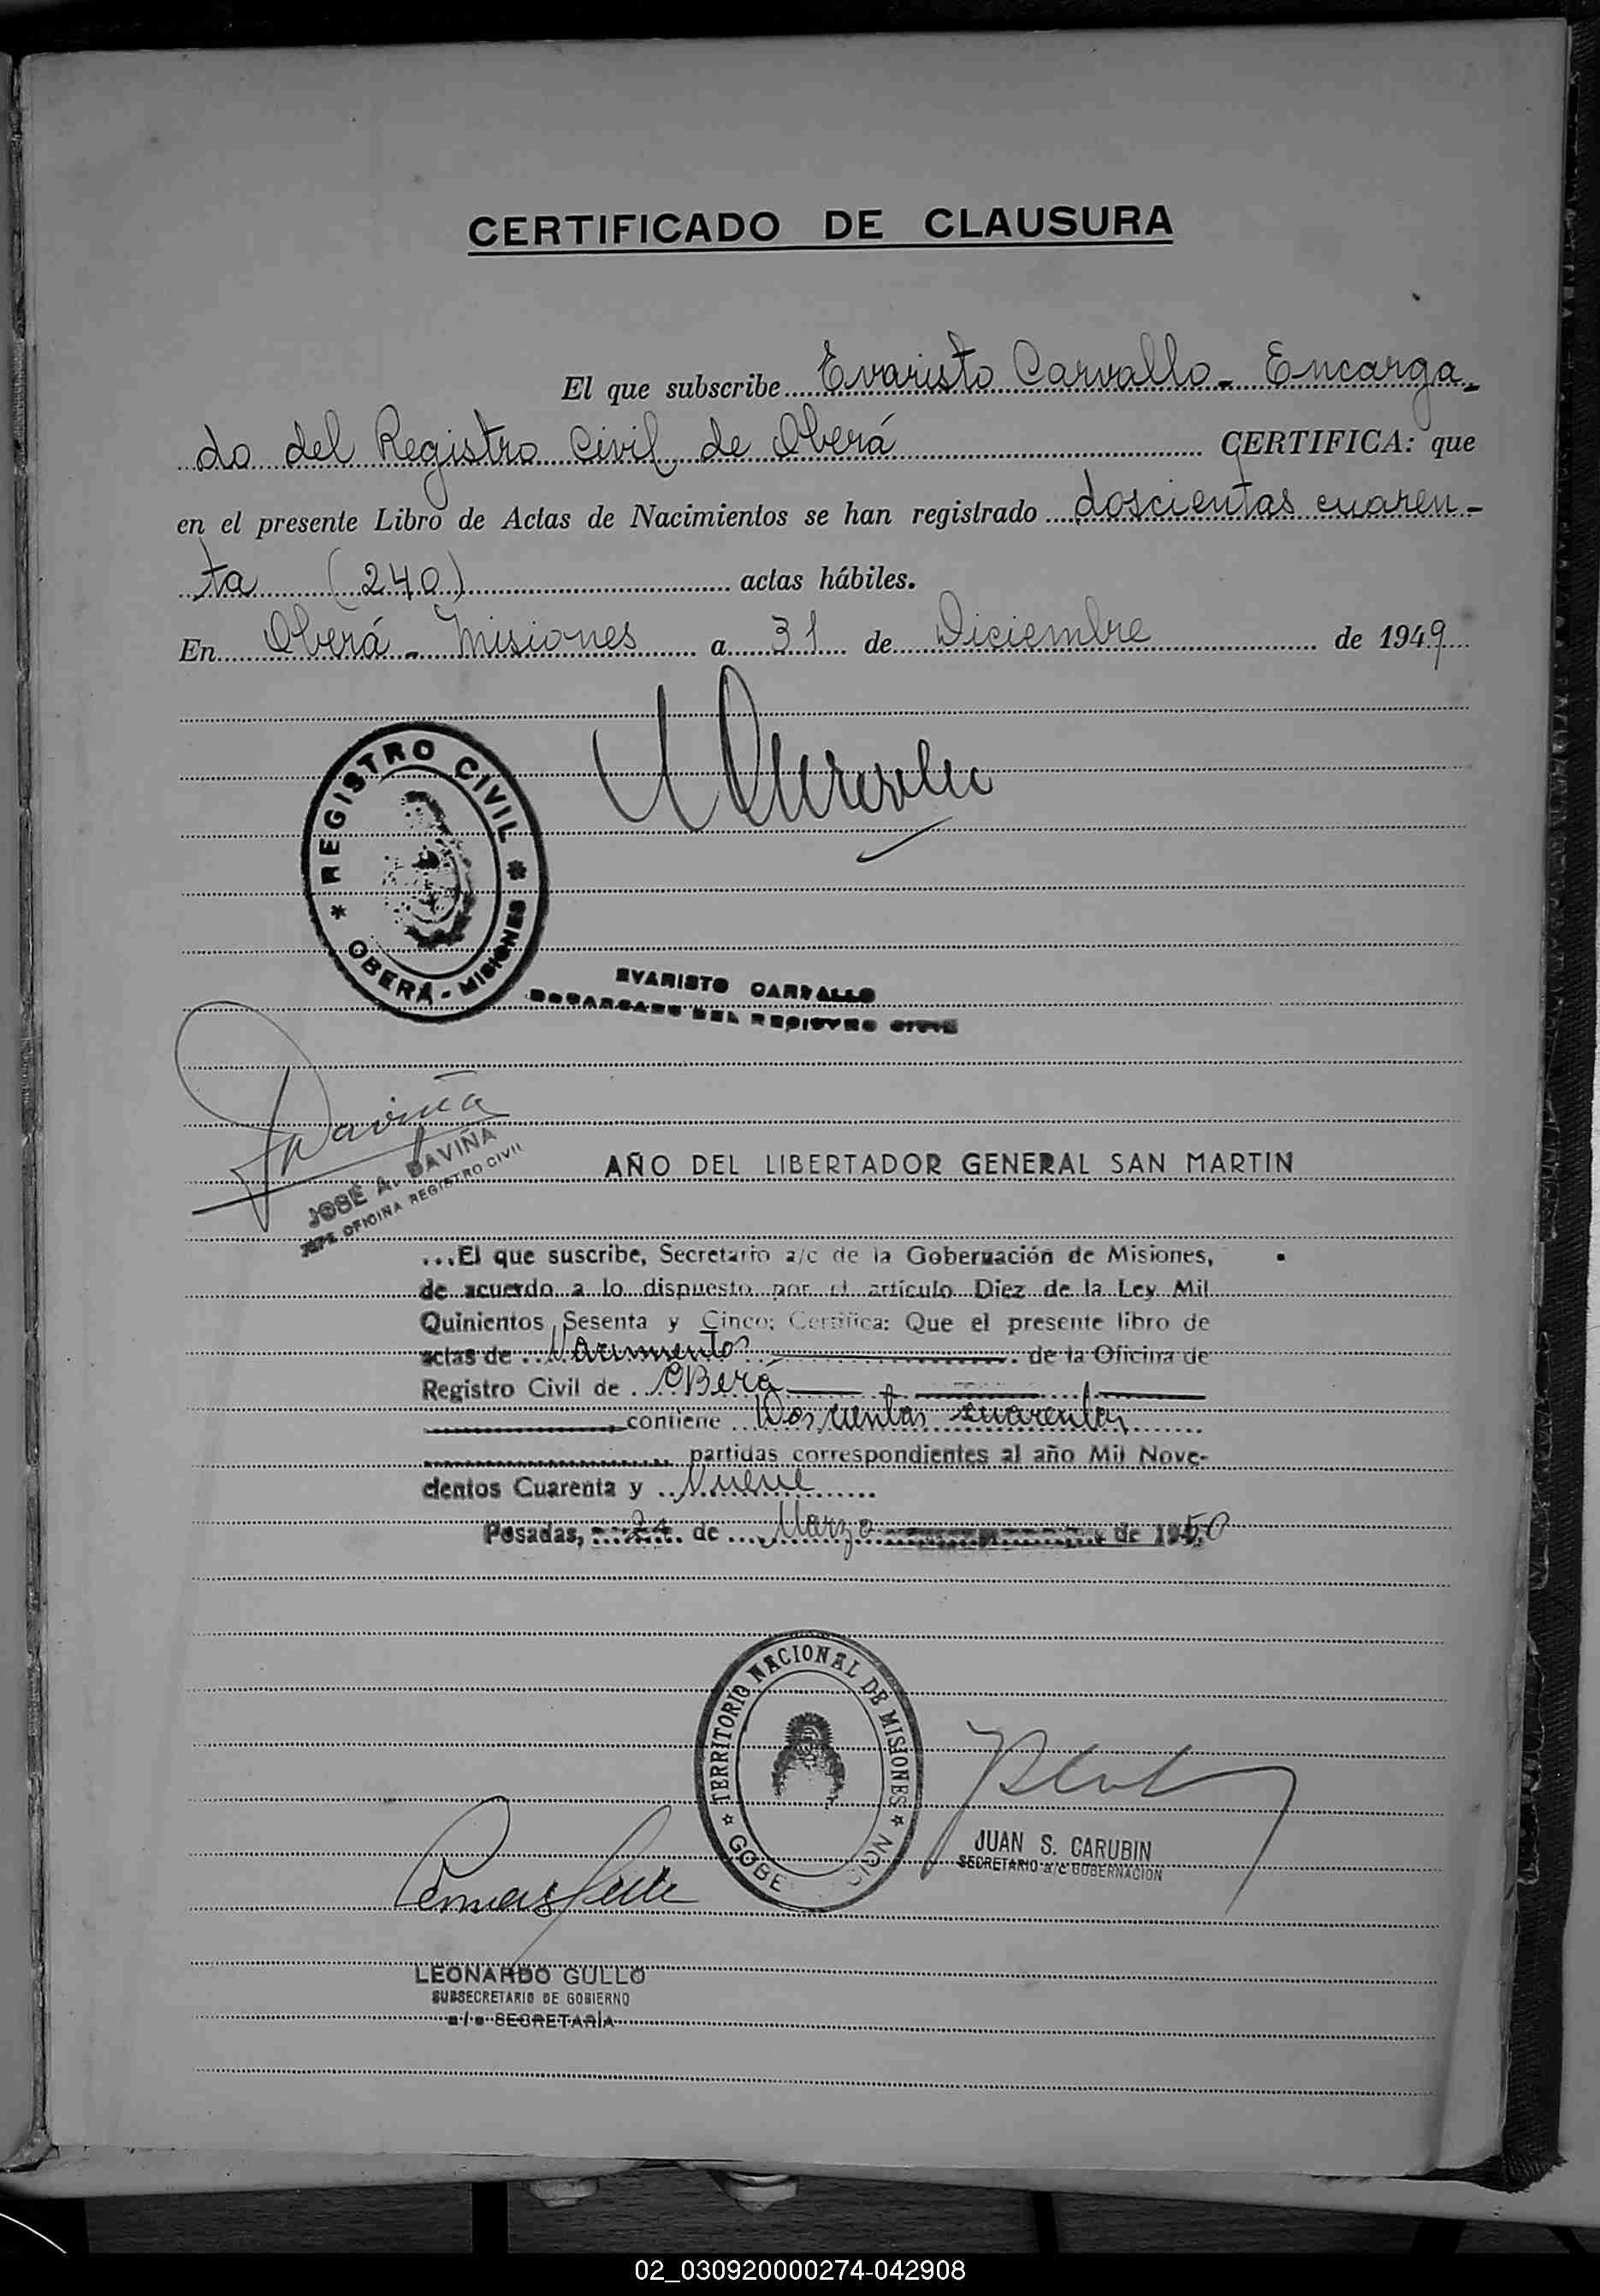 CERTIFICADO DE CLAUSURA
El que subscribe Evaristo Carvallo - Encarga-
do del Registro Civil de Oberá CERTIFICA: que
en el presente Libro de Actas de Nacimientos se han registrado doscientas cuaren-
ta (240) actas hábiles.
En Oberá - Misiones a 31 de Diciembre de 1949
REGISTRO CIVIL
* OBERÁ - MISIONES *
EVARISTO CARVALLO
ENCARGADO DEL REGISTRO CIVIL
Daviña
JOSÉ A. DAVIÑA
JEFE OFICINA REGISTRO CIVIL
AÑO DEL LIBERTADOR GENERAL SAN MARTIN
...El que suscribe, Secretario a/c de la Gobernación de Misiones,
de acuerdo a lo dispuesto por el artículo Diez de la Ley Mil
Quinientos Sesenta y Cinco; Certifica: Que el presente libro de
actas de Nacimientos de la Oficina de
Registro Civil de Oberá
contiene Doscientas cuarenta
partidas correspondientes al año Mil Nove-
cientos Cuarenta y Nueve
Posadas, de Marzo de 1950
TERRITORIO NACIONAL DE MISIONES
* GOBE CION *
JUAN S. CARUBIN
SECRETARIO a/c GOBERNACIÓN
LEONARDO GULLO
SUBSECRETARIO DE GOBIERNO
a/c SECRETARÍA
02_030920000274-042908